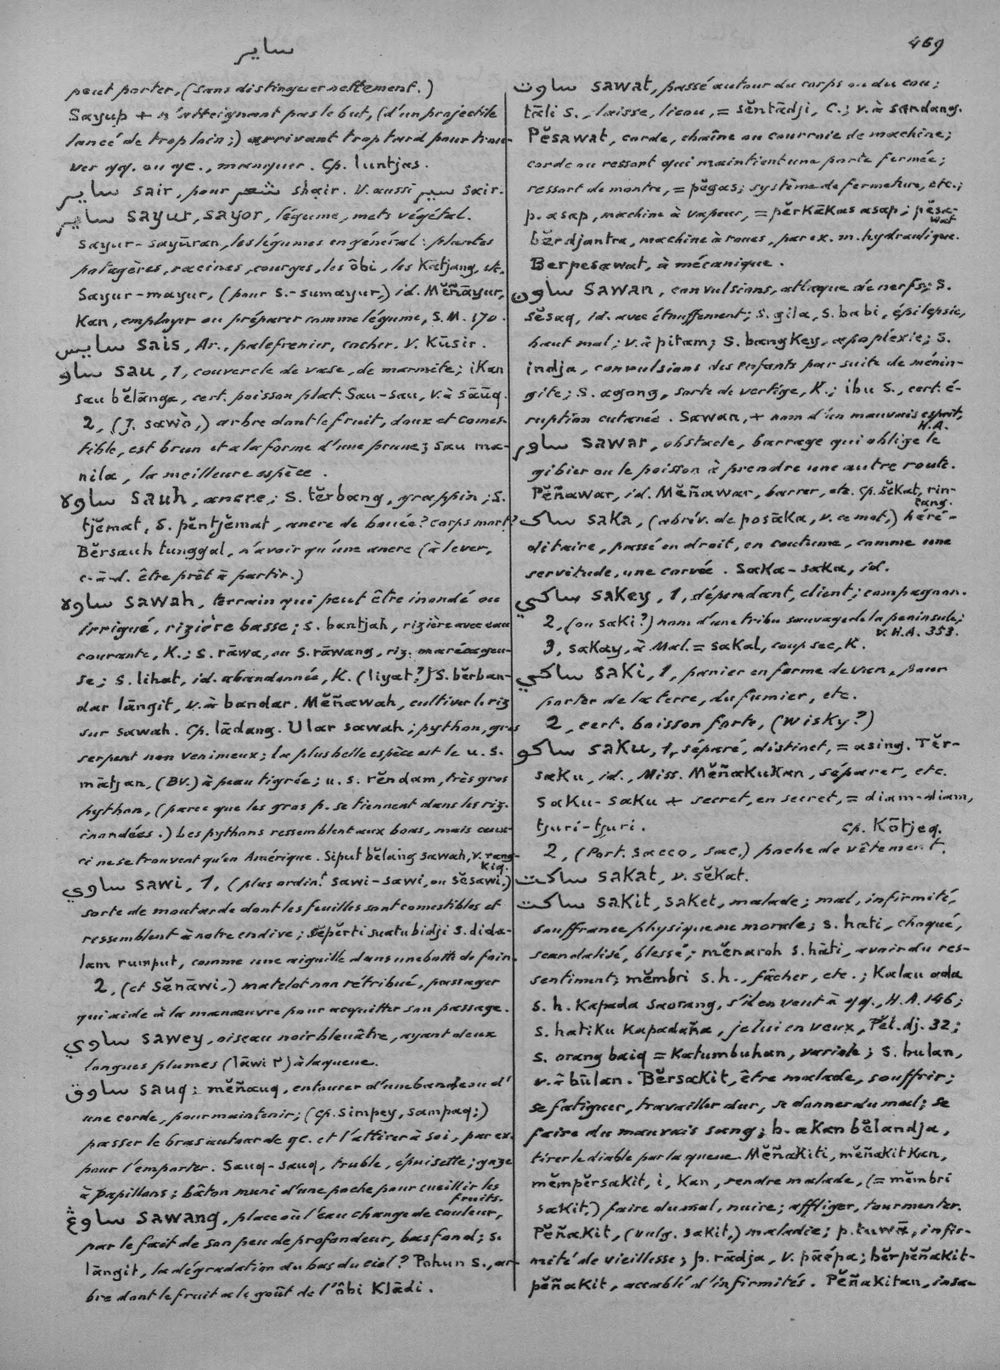 ساير
469
peut porter, (sans distinguer nettement.)
Sayup + n'atteignant pas le but, (d'un projectile
lancé de trop loin;) arrivant trop tard pour trou-
ver qq. ou qc., manquer. Cp. luntjas.
ساير sair, pour شعر shaïr. V. aussi سير sair.
ساير sayur, sayor, légume, mets végétal.
Sayur-sayūran, les légumes en général: plantes
potagères, racines, courges, les ôbi, les Katjang, etc.
Sayur-mayur, (pour s.-sumayur,) id. Mĕñāyur,
Kan, employer ou préparer comme légume, S.M. 170.
سايس sais, Ar., palefrenier, cocher. V. Kūsir.
ساو sau, 1, couvercle de vase, de marmite; ikan
sau bĕlānga, cert. poisson plat. Sau-sau, v. à sāūq.
2, (J. sawò,) arbre dont le fruit, doux et comes-
tible, est brun et a la forme d'une prune; sau ma-
nila, la meilleure espèce.
ساوه sauh, ancre; s. tĕrbang, grappin; s.
tjĕmat, s. pĕntjĕmat, ancre de bouée? corps mort?
Bĕrsauh tunggal, n'avoir qu'une ancre (à lever,
c-à-d. être prêt à partir.)
ساوه sawah, terrain qui peut être inondé ou
irrigué, rizière basse; s. bantjah, rizière avec eau
courante, K.; s. rāwa, ou s. rāwang, riz. marécageu-
se; s. lihat, id. abandonnée, K. (liyat?) S. bĕrban-
dar lāngit, v. à bandar. Mĕñawah, cultiver le riz
sur sawah. Cp. lādang. Ular sawah, python, gros
serpent non venimeux; la plus belle espèce est le u. s.
mātjan, (BV.) à peau tigrée; u. s. rĕndam, très gros
python, (parce que les gros p. se tiennent dans les riz.
inondées.) Les pythons ressemblent aux boas, mais ceux-
ci ne se trouvent qu'en Amérique. Siput bĕlāng sawah, v. rang-
kiq.
ساوي sawi, 1, (plus ordin.t sawi-sawi, ou sĕsawi,)
sorte de moutarde dont les feuilles sont comestibles et
ressemblent à notre endive; sĕpĕrti suatu bidji s. dida-
lam rumput, comme une aiguille dans une botte de foin.
2, (et sĕnāwi,) matelot non rétribué, passager
qui aide à la manœuvre pour acquitter son passage.
ساوي sawey, oiseau noir bleuâtre, ayant deux
longues plumes (lāwi ٢) à la queue.
ساوق sauq; mĕñauq, entourer d'un bandeau d'
une corde, pour maintenir; (cp. simpey, sampaq;)
passer le bras autour de qc. et l'attirer à soi, par ex.
pour l'emporter. Sauq-sauq, truble, épuisette; gaze
à papillons; bâton muni d'une poche pour cueillir les
fruits.
ساوڠ sawang, place où l'eau change de couleur,
par le fait de son peu de profondeur, bas fond; s.
lāngit, la dégradation du bas du ciel? Pohun s., ar-
bre dont le fruit a le goût de l'ôbi Klādi.
ساوت sawat, passé autour du corps ou du cou;
tāli s., laisse, licou, = sĕntādji, C.; v. à sandang.
Pĕsawat, corde, chaîne ou courroie de machine;
corde ou ressort qui maintient une porte fermée;
ressort de montre, = pĕgas; système de fermeture, etc.;
p. asap, machine à vapeur, = pĕrkākas asap; pĕsa-
wat
bĕrdjantra, machine à roues, par ex. m. hydraulique.
Berpesawat, à mécanique.
ساون sawan, convulsions, attaque de nerfs; s.
sĕsaq, id. avec étouffement; s. gila, s. babi, épilepsie,
haut mal; v. à pitam; s. bangkey, apoplexie; s.
indja, convulsions des enfants par suite de ménin-
gite; s. agong, sorte de vertige, K.; ibu s., cert. é-
ruption cutanée. Sawan, + nom d'un mauvais esprit,
H.A.
ساور sawar, obstacle, barrage qui oblige le
gibier ou le poisson à prendre une autre route.
Pĕñawar, id. Mĕñawar, barrer, etc. Cp. sĕkat, rin-
tang.
ساك saka, (abrév. de posāka, v. ce mot,) héré-
ditaire, passé en droit, en coutume, comme une
servitude, une corvée. Saka-saka, id.
ساكي sakey, 1, dépendant, client; compagnon.
2, (ou saki?) nom d'une tribu sauvage de la péninsule;
v. H.A. 353.
3, sakay, à Mal. = sakal, coup sec, K.
ساكي saki, 1, panier en forme de van, pour
porter de la terre, du fumier, etc.
2, cert. boisson forte, (Wisky?)
ساكو saku, 1, séparé, distinct, = asing. Tĕr-
saku, id., Miss. Mĕñakukan, séparer, etc.
Saku-saku + secret, en secret, = diam-diam,
tjuri-tjuri. cp. Kōtjeq.
2, (Port. sacco, sac,) poche de vêtement.
ساكت sakat, v. sĕkat.
ساكت sakit, saket, malade; mal, infirmité,
souffrance, physique ou morale; s. hati, choqué,
scandalisé, blessé; mĕnaroh s. hāti, avoir du res-
sentiment; mĕmbri s. h., fâcher, etc.; Kalau ada
s. h. Kapada saorang, s'il en veut à qq., H.A. 146;
s. hatiku Kapadaña, je lui en veux, Pĕl. dj. 32;
s. orang baiq = Katumbuhan, variole; s. bulan,
v. à būlan. Bĕrsakit, être malade, souffrir;
se fatiguer, travailler dur, se donner du mal; se
faire du mauvais sang; b. akan bĕlandja,
tirer le diable par la queue. Mĕñakiti, mĕñakitkan,
mĕmpĕrsakit, i, kan, rendre malade, (= mĕmbri
sakit,) faire du mal, nuire; affliger, tourmenter.
Pĕñakit, (vulg. sakit,) maladie; p. tuwā, infir-
mité de vieillesse; p. rādja, v. pāépa; bĕrpĕñakit-
pĕñakit, accablé d'infirmités. Pĕñakitan, insa-